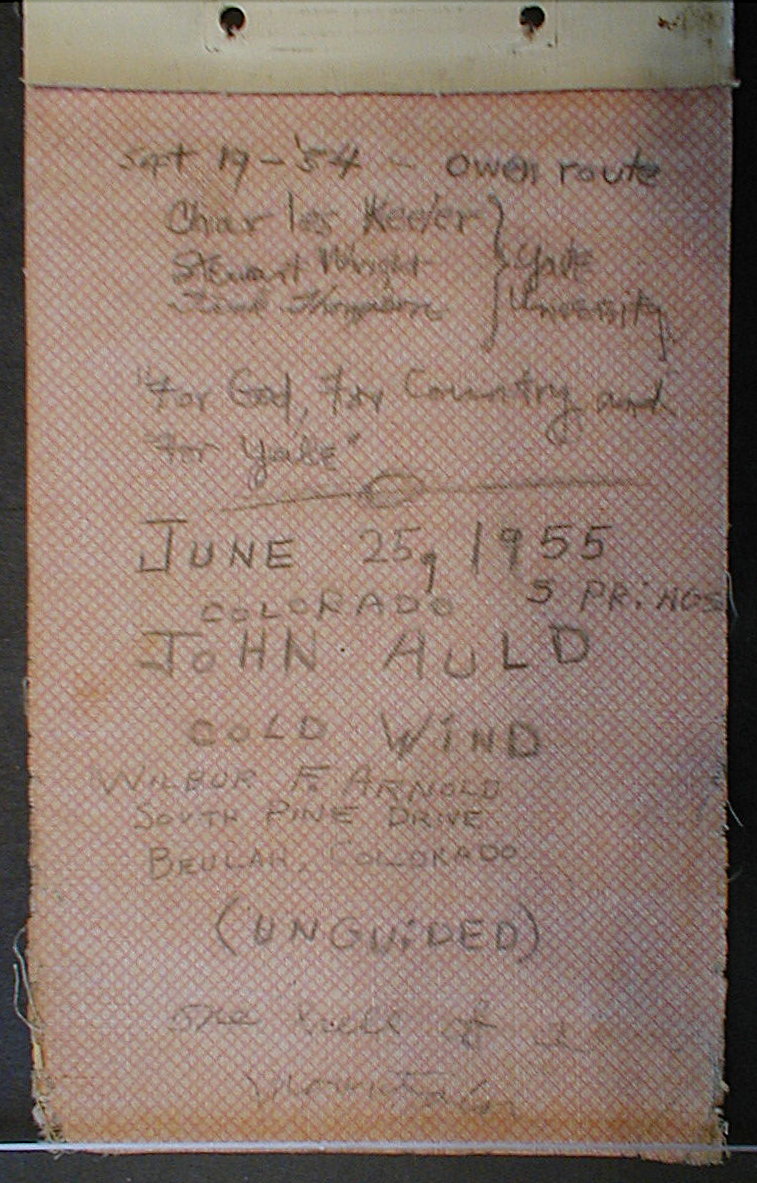 Sept 19 - '54 - Owen route
Charles Keeler
Stewart Wright } Yale
Thompson University
"For God, For Country, and
For Yale"
JUNE 25, 1955
COLORADO SPRiNGS
JOHN AULD
COLD WiND
WILBUR F. ARNOLD
SOUTH PINE DRIVE
BEULAH, COLORADO
(UNGUiDED)
one hell of a